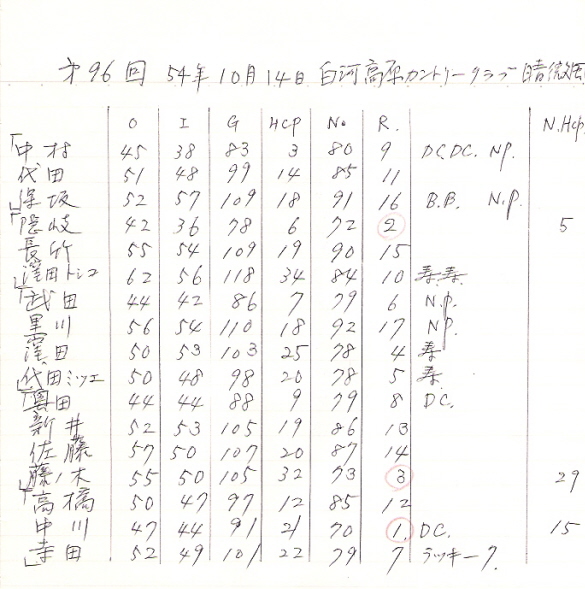 第96回 54年10月14日 白河高原カントリークラブ 晴微風
O I G HCP No R. N.Hcp.
中村 45 38 83 3 80 9 D.C.D.C. N.P.
代田 51 48 99 14 85 11
保坂 52 57 109 18 91 16 B.B. N.P.
隠岐 42 36 78 6 72 2 5
長竹 55 54 109 19 90 15
窪田トシコ 62 56 118 34 84 10 寿.寿.
武田 44 42 86 7 79 6 N.P.
黒川 56 54 110 18 92 17 N.P.
窪田 50 53 103 25 78 4 寿
代田ミツエ 50 48 98 20 78 5 寿.
奥田 44 44 88 9 79 8 D.C.
新井 52 53 105 19 86 13
佐藤 57 50 107 20 87 14
藤ノ木 55 50 105 32 73 3 29
高橋 50 47 97 12 85 12
中川 47 44 91 21 70 1. D.C. 15
寺田 52 49 101 22 79 7 ラッキー7.